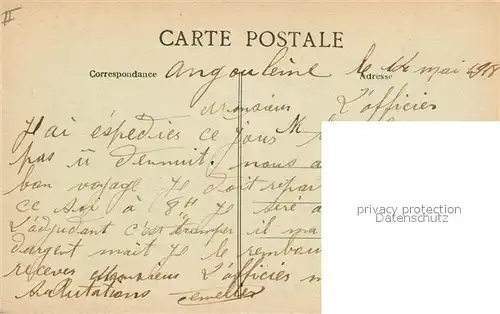 II
CARTE POSTALE
Correspondance
Adresse
angoulême le 14 mai 1918
Monsieur L'officier
J'ai éspedier ce jous M
pas û d'ennuit. nous a
bon voyage Je doit répar
ce soi à 8H Je seré a
L'adjudant c'est tromper il ma
d'argent mait je le rembou
recever Monsieus L'officier m
Salutations
privacy protection
Datenschutz